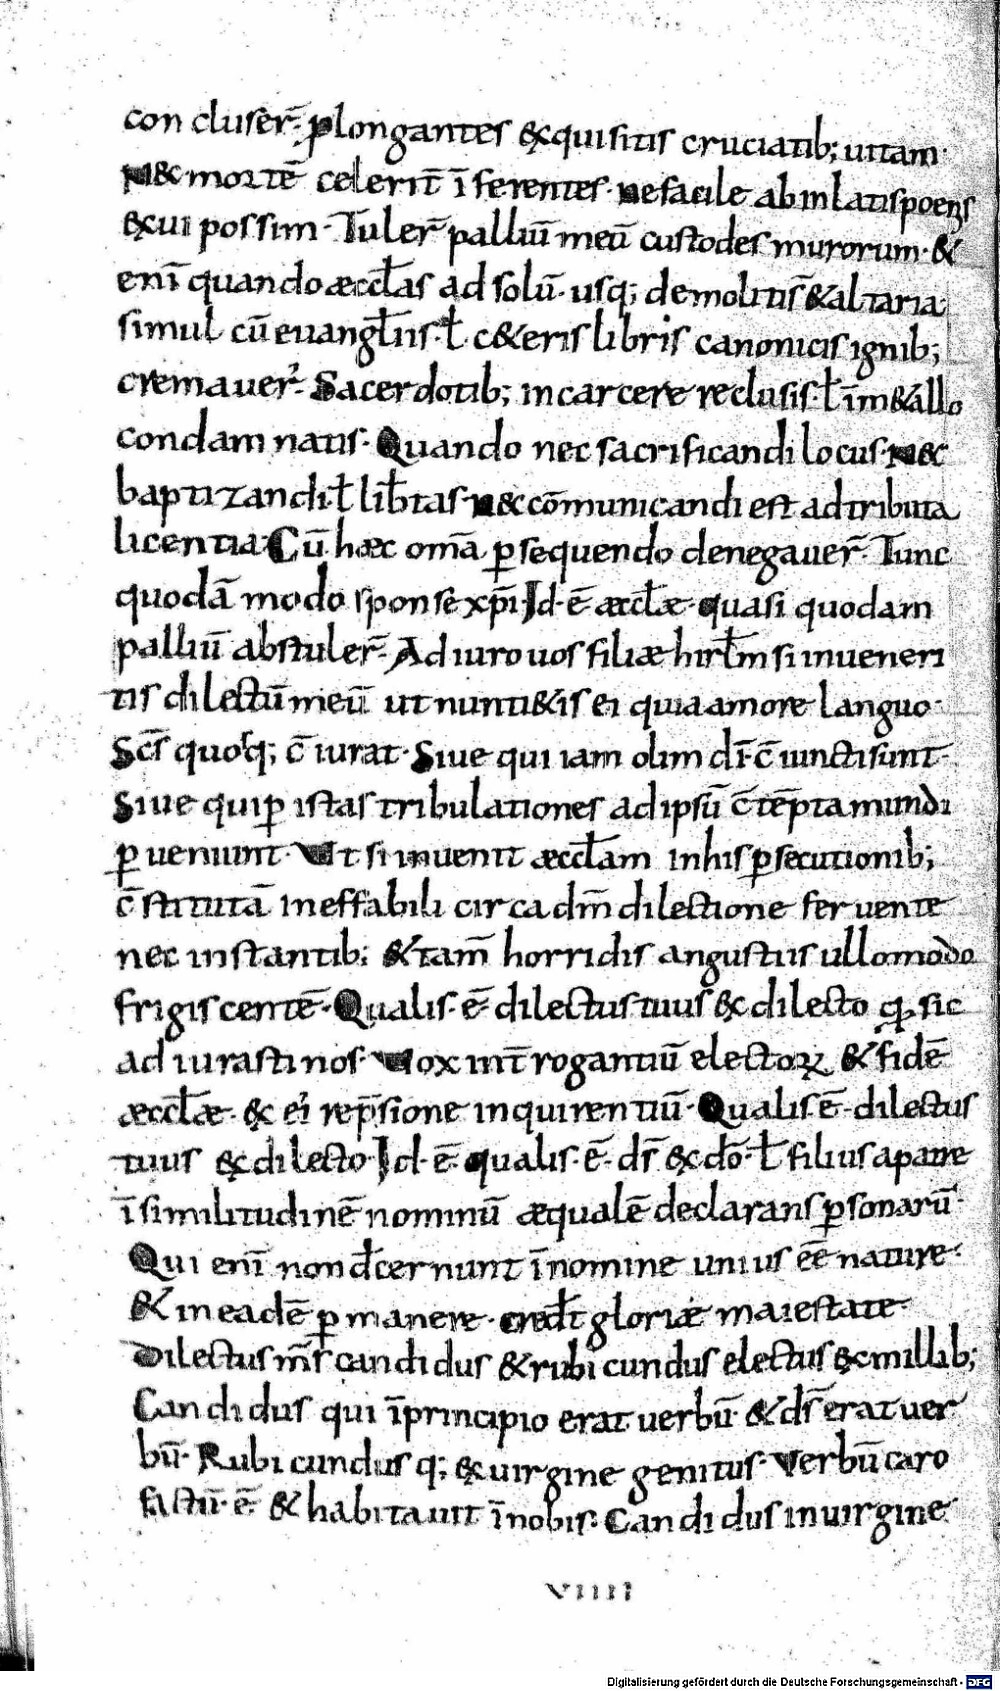 con cluser̄· ꝓlongantes exquisitis cruciatib; uitam·
N& mortē celerit̄ īferentes· ne facile ab inlatis poenis
exui possim· Tuler̄ palliū meū custodes murorum· &
enī quando æccl̄as ad solū· usq; demolitis̄ & altaria
simul cū euangl̄iis· ł c&eris libris canonicis ignib;
cremauer̄· Sacerdotib; in carcere reclusis· ł īm&allo
condam natis· Quando nec sacrificandi locus· nec
baptizandi ł lib̄tas· n& cōmunicandi est adtributa
licentia· Cū hæc om̄a ꝑsequendo denegauer̄· Tunc
quodā modo sponse xp̄i· Id· ē· æccl̄æ· quasi quodam
palliū abstuler̄· Adiuro uos filiæ hirl̄m si inueneri
tis dilectū meū ut nunti&is ei quia amore languo·
Sc̄s quoq; c̄iurat· Siue qui iam olim dī· c̄iuncti sunt·
Siue qui ꝑ istas tribulationes ad ipsū c̄tēpta mundi
ꝑueniunt· Vt si inuenit æccl̄am in his ꝑsecutionib;
c̄stitutā ineffabili circa dm̄ dilectione feruente
nec instantib; & tam̄ horridis angustiis ullomodo
frigiscentē· Qualis· ē· dilectus tuus ex dilecto q̨ sic
adiurasti nos· Vox int̄rogantiū electoꝝ & fidē
æccl̄æ· ex ei rep̄sione inquirentiū· Qualis· ē· dilectus
tuus ex dilecto· Id· ē· qualis· ē· dс̄ ex dō· ł filius a patre
ī similitudinē nominū æqualē declarans ꝑsonarū·
Qui enī non dc̄ernunt ī nomine unius ēē nature·
& in eadē ꝑmanere· cred̄t gloriæ maiestate·
Dilectus m̄s candidus & rubicundus electus ex millib;
Candidus qui īprincipio erat uerbū· & ds̄ erat uer
bū· Rubicundus q; ex uirgine genitus· Verbū caro
factū· ē· & habitauit īnobis· Candidus in uirgine
VIIII
Digitalisierung gefördert durch die Deutsche Forschungsgemeinschaft - DFG